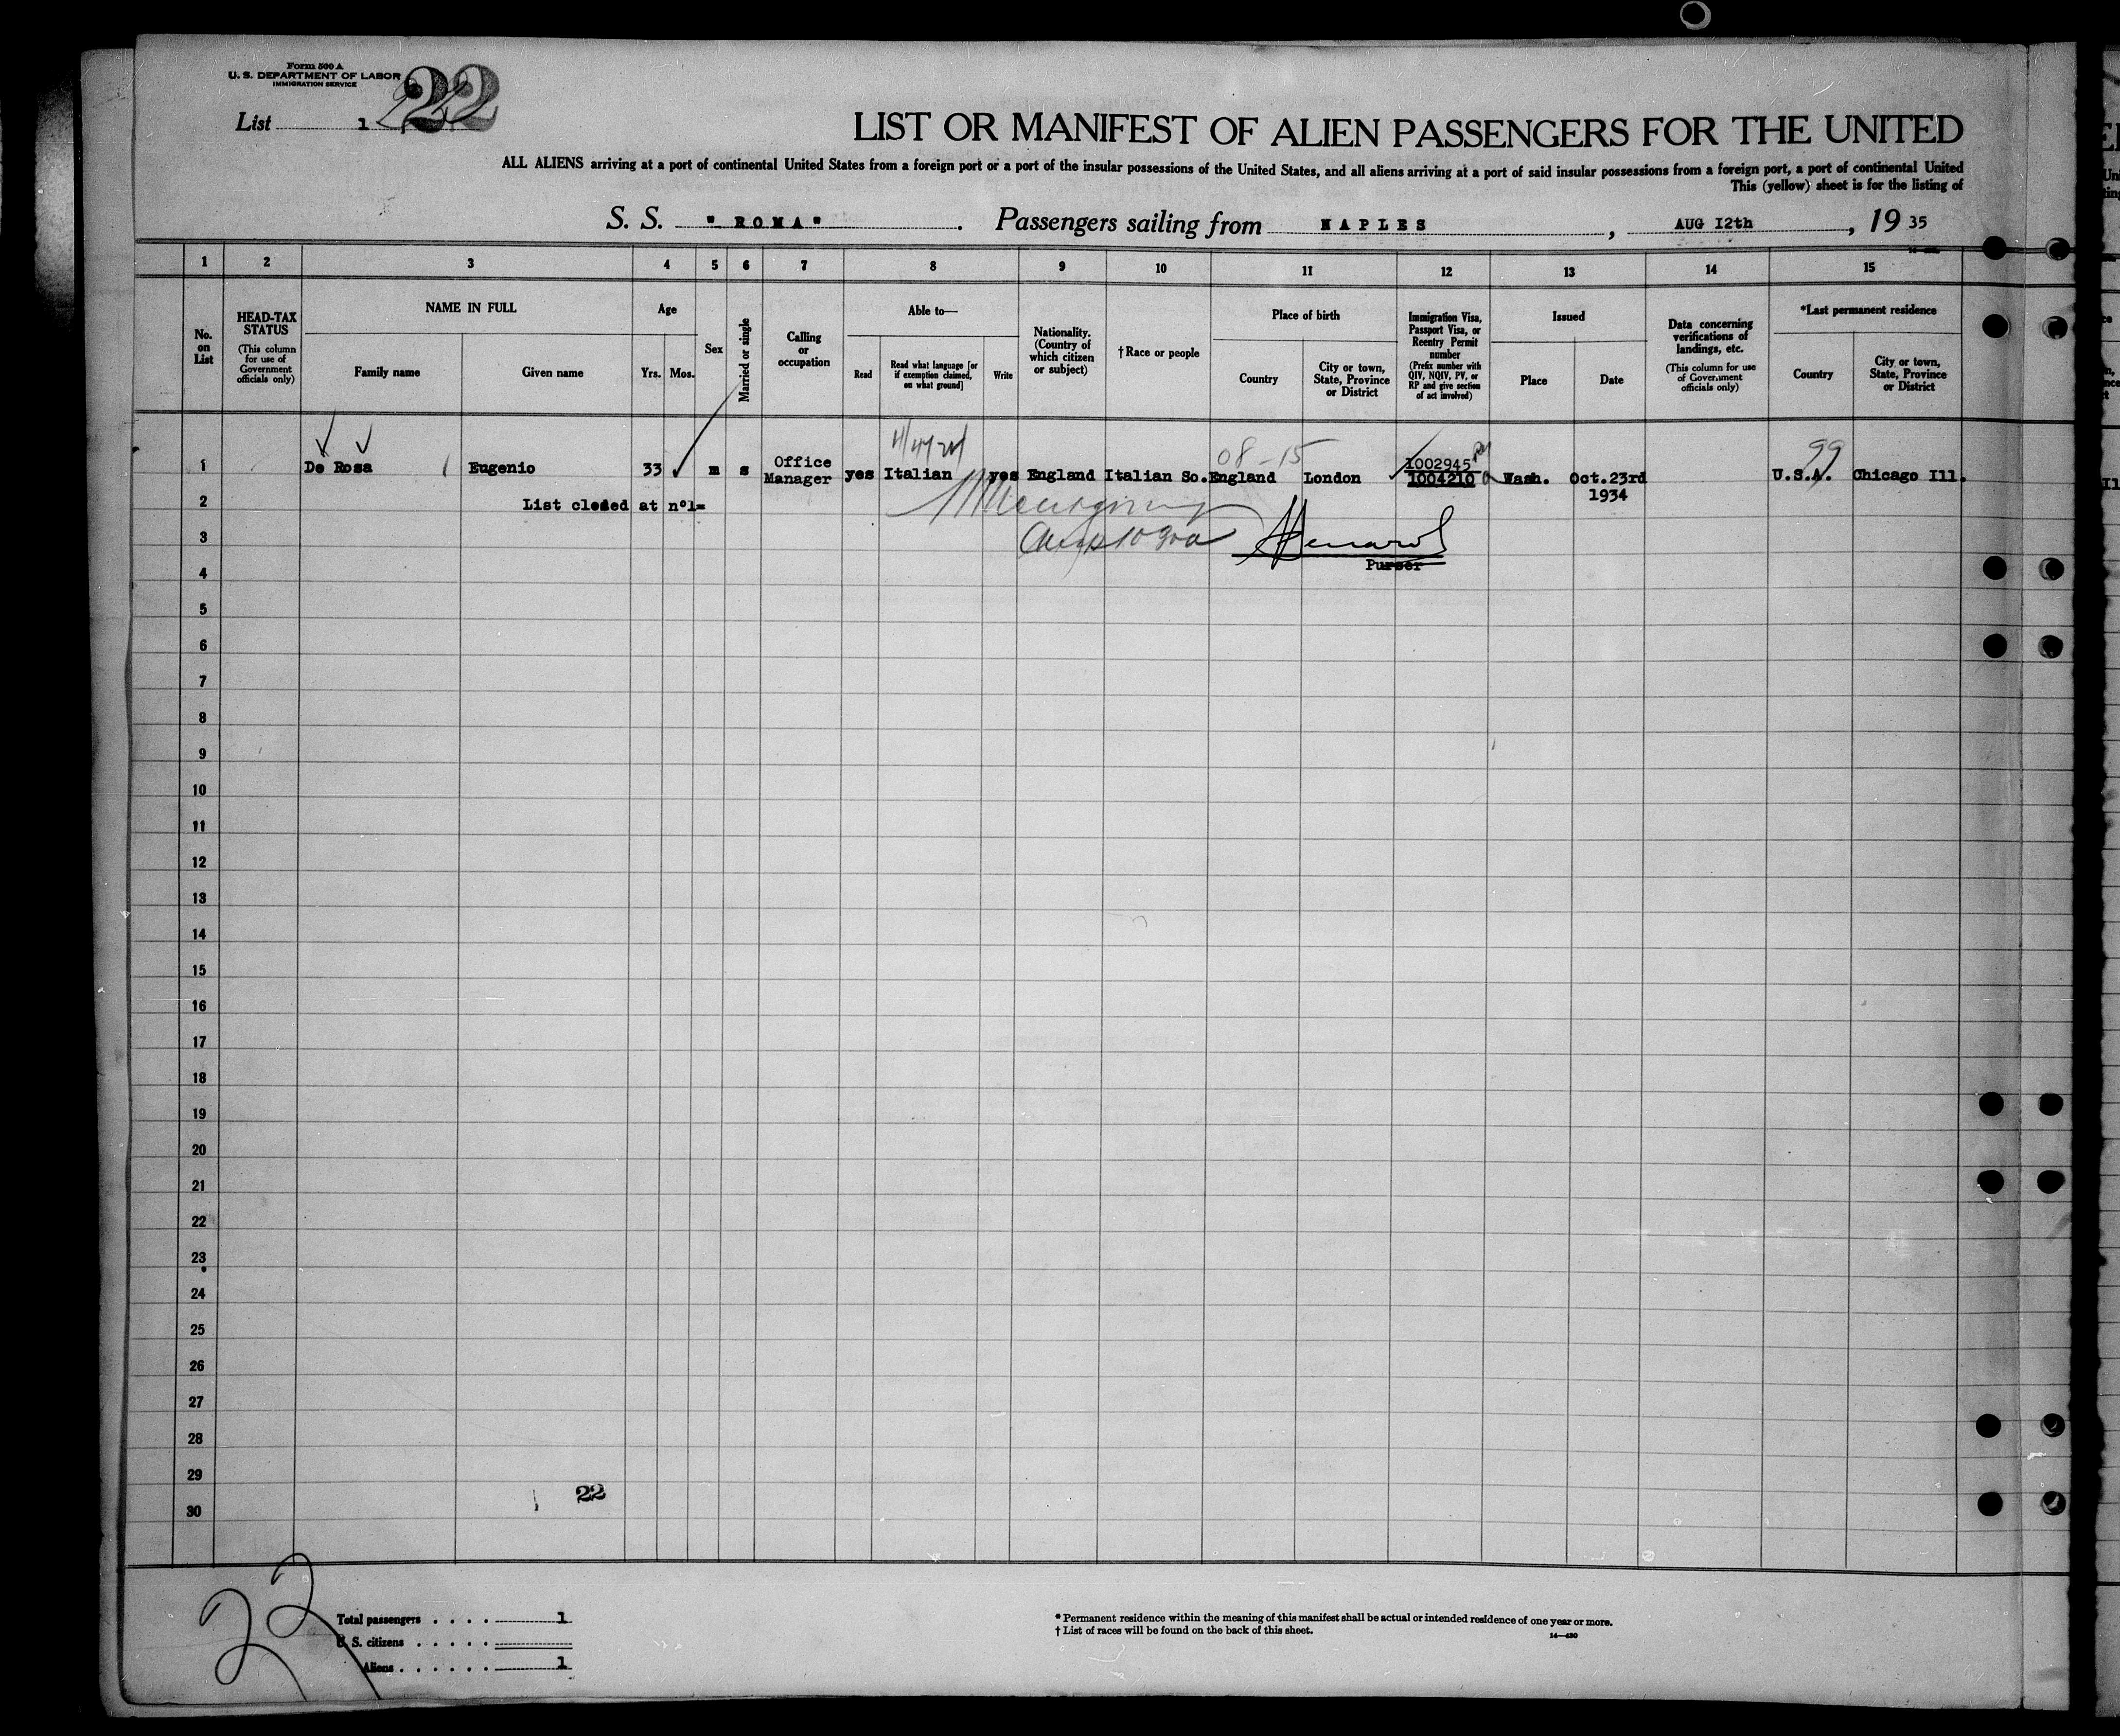 Form 500 A
U. S. DEPARTMENT OF LABOR
IMMIGRATION SERVICE
List 1 22
LIST OR MANIFEST OF ALIEN PASSENGERS FOR THE UNITED
ALL ALIENS arriving at a port of continental United States from a foreign port or a port of the insular possessions of the United States, and all aliens arriving at a port of said insular possessions from a foreign port, a port of continental United
This (yellow) sheet is for the listing of
S. S. "ROMA" . Passengers sailing from NAPLES , AUG 12th , 19 35
1 2 3 4 5 6 7 8 9 10 11 12 13 14 15
No. on List
HEAD-TAX STATUS
(This column for use of Government officials only)
NAME IN FULL
Family name
Given name
Age
Yrs.
Mos.
Sex
Married or single
Calling or occupation
Able to—
Read
Read what language [or if exemption claimed, on what ground]
Write
Nationality. (Country of which citizen or subject)
†Race or people
Place of birth
Country
City or town, State, Province or District
Immigration Visa, Passport Visa, or Reentry Permit number
(Prefix number with QIV, NQIV, PV, or RP and give section of act involved)
Issued
Place
Date
Data concerning verifications of landings, etc.
(This column for use of Government officials only)
*Last permanent residence
Country
City or town, State, Province or District
08-15
99
1 De Rosa Eugenio 33 m s Office Manager yes Italian yes England Italian So. England London 1002945 1004210 Wash. Oct.23rd 1934 U.S.A. Chicago Ill.
2 List closed at n°1=
3
4 Purser
5
6
7
8
9
10
11
12
13
14
15
16
17
18
19
20
21
22
23
24
25
26
27
28
29
22
30
22
Total passengers . . . . 1
U. S. citizens . . . . .
Aliens . . . . . . 1
* Permanent residence within the meaning of this manifest shall be actual or intended residence of one year or more.
† List of races will be found on the back of this sheet.
14—430